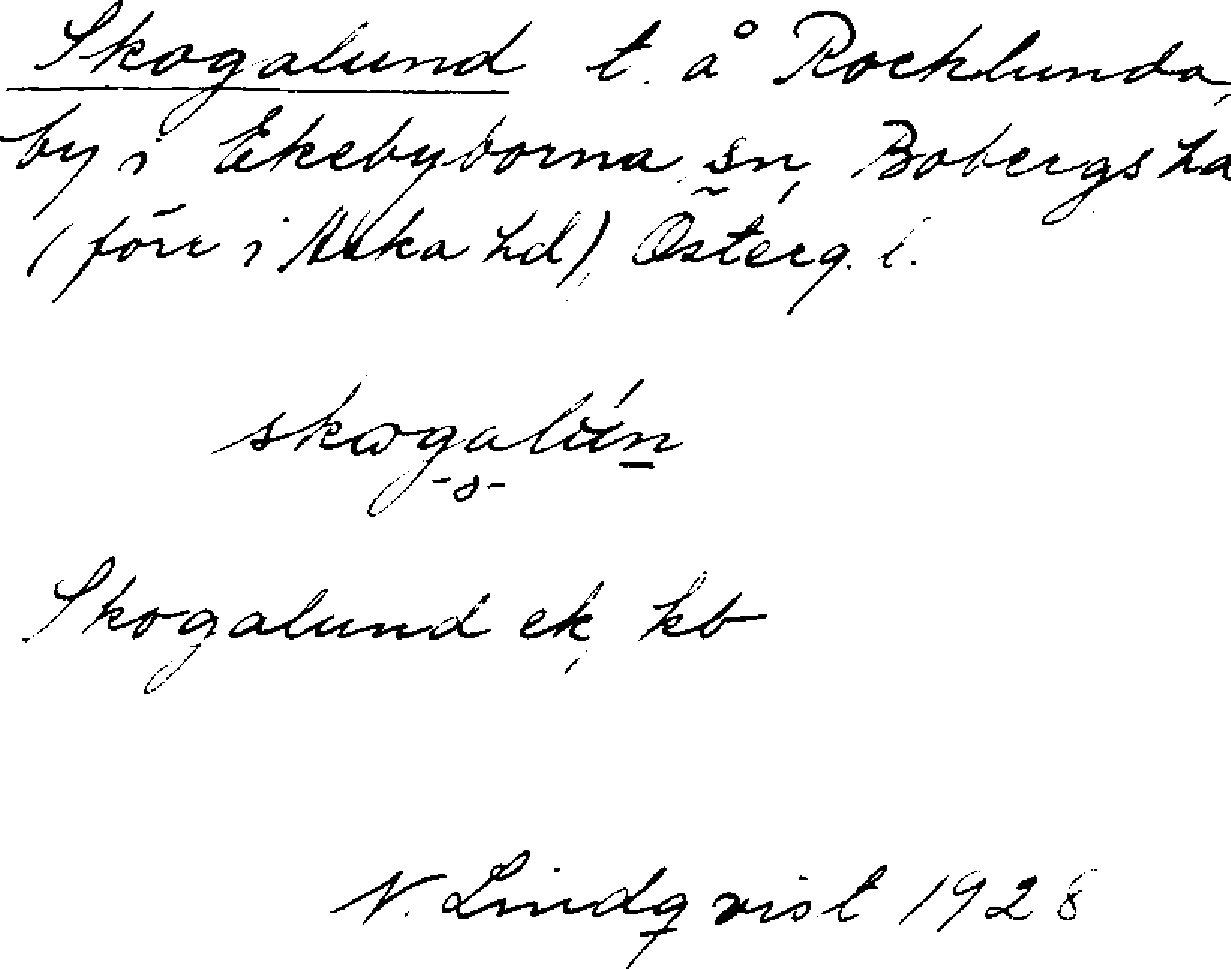 Skogalund t. å Rocklunda,
by i Ekebyborna sn, Bobergs hd
(förr i Aska hd), Österg. l.
skogalún
-ə-
Skogalund ek, kb
N. Lindqvist 1928